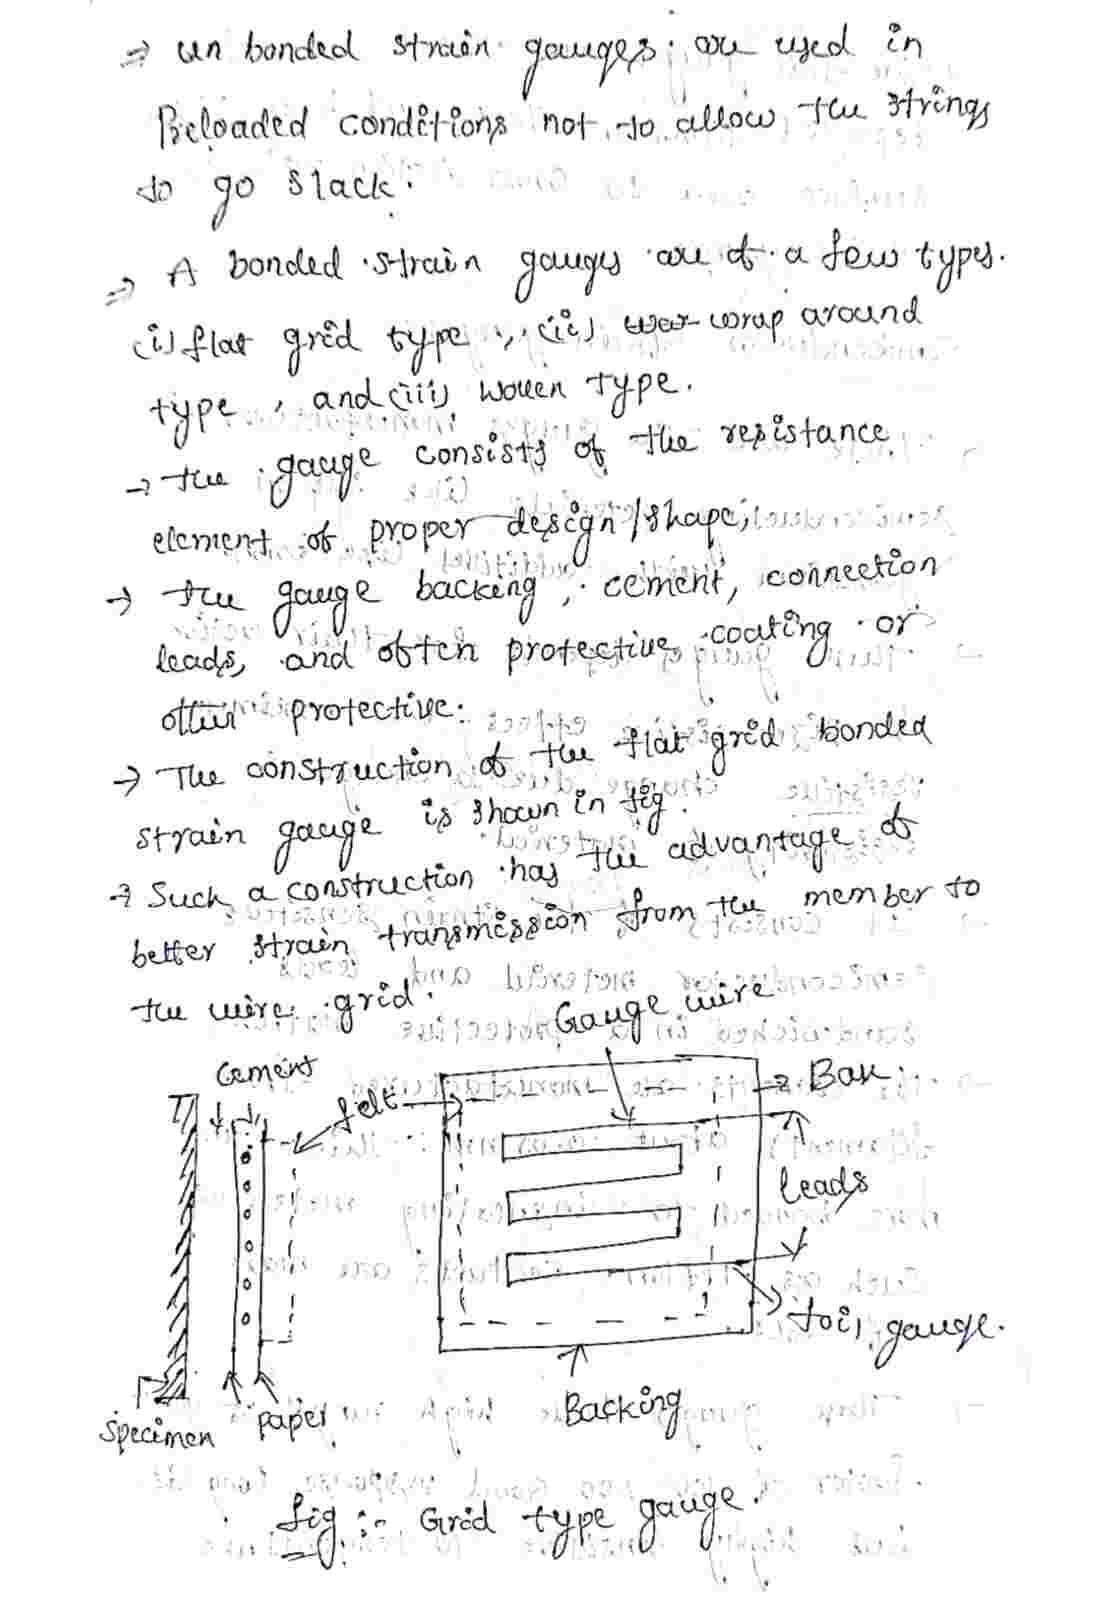 ⇒ un bonded strain gauges are used in
Preloaded conditions not to allow the strings
to go slack.
⇒ A bonded strain gauges are of a few types.
(i) flat grid type, (ii) wrap around
type, and (iii) woven type.
→ the gauge consists of the resistance
element of proper design/shape,
→ the gauge backing, cement, connection
leads, and often protective coating or
other protective.
→ The construction of the flat grid bonded
strain gauge is shown in fig.
→ Such a construction has the advantage of
better strain transmission from the member to
the wire grid.
Gauge wire
Cement
felt
→ Bak.
leads
foil gauge.
Backing
specimen
paper
fig :- Grid type gauge.